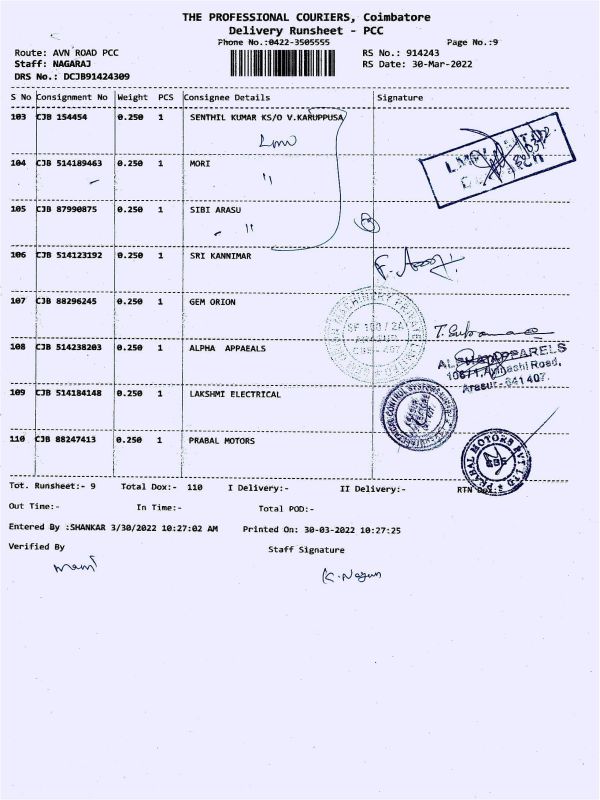 THE PROFESSIONAL COURIERS, Coimbatore
Delivery Runsheet - PCC
Phone No.:0422-3505555 Page No.:9
Route: AVN ROAD PCC RS No.: 914243
Staff: NAGARAJ RS Date: 30-Mar-2022
DRS No.: DCJB91424309
S No Consignment No Weight PCS Consignee Details Signature
103 CJB 154454 0.250 1 SENTHIL KUMAR KS/O V.KARUPPUSA
104 CJB 514189463 0.250 1 MORI
105 CJB 87990875 0.250 1 SIBI ARASU
106 CJB 514123192 0.250 1 SRI KANNIMAR
107 CJB 88296245 0.250 1 GEM ORION
108 CJB 514238203 0.250 1 ALPHA APPAEALS
ALPHA APPARELS
106/1, Avinashi Road,
Arasur-641 407.
109 CJB 514184148 0.250 1 LAKSHMI ELECTRICAL
110 CJB 88247413 0.250 1 PRABAL MOTORS
PRABAL MOTORS PVT LTD
CBE
Tot. Runsheet:- 9 Total Dox:- 110 I Delivery:- II Delivery:- RTN
Out Time:- In Time:- Total POD:-
Entered By :SHANKAR 3/30/2022 10:27:02 AM Printed On: 30-03-2022 10:27:25
Verified By Staff Signature
mani K. Nagan